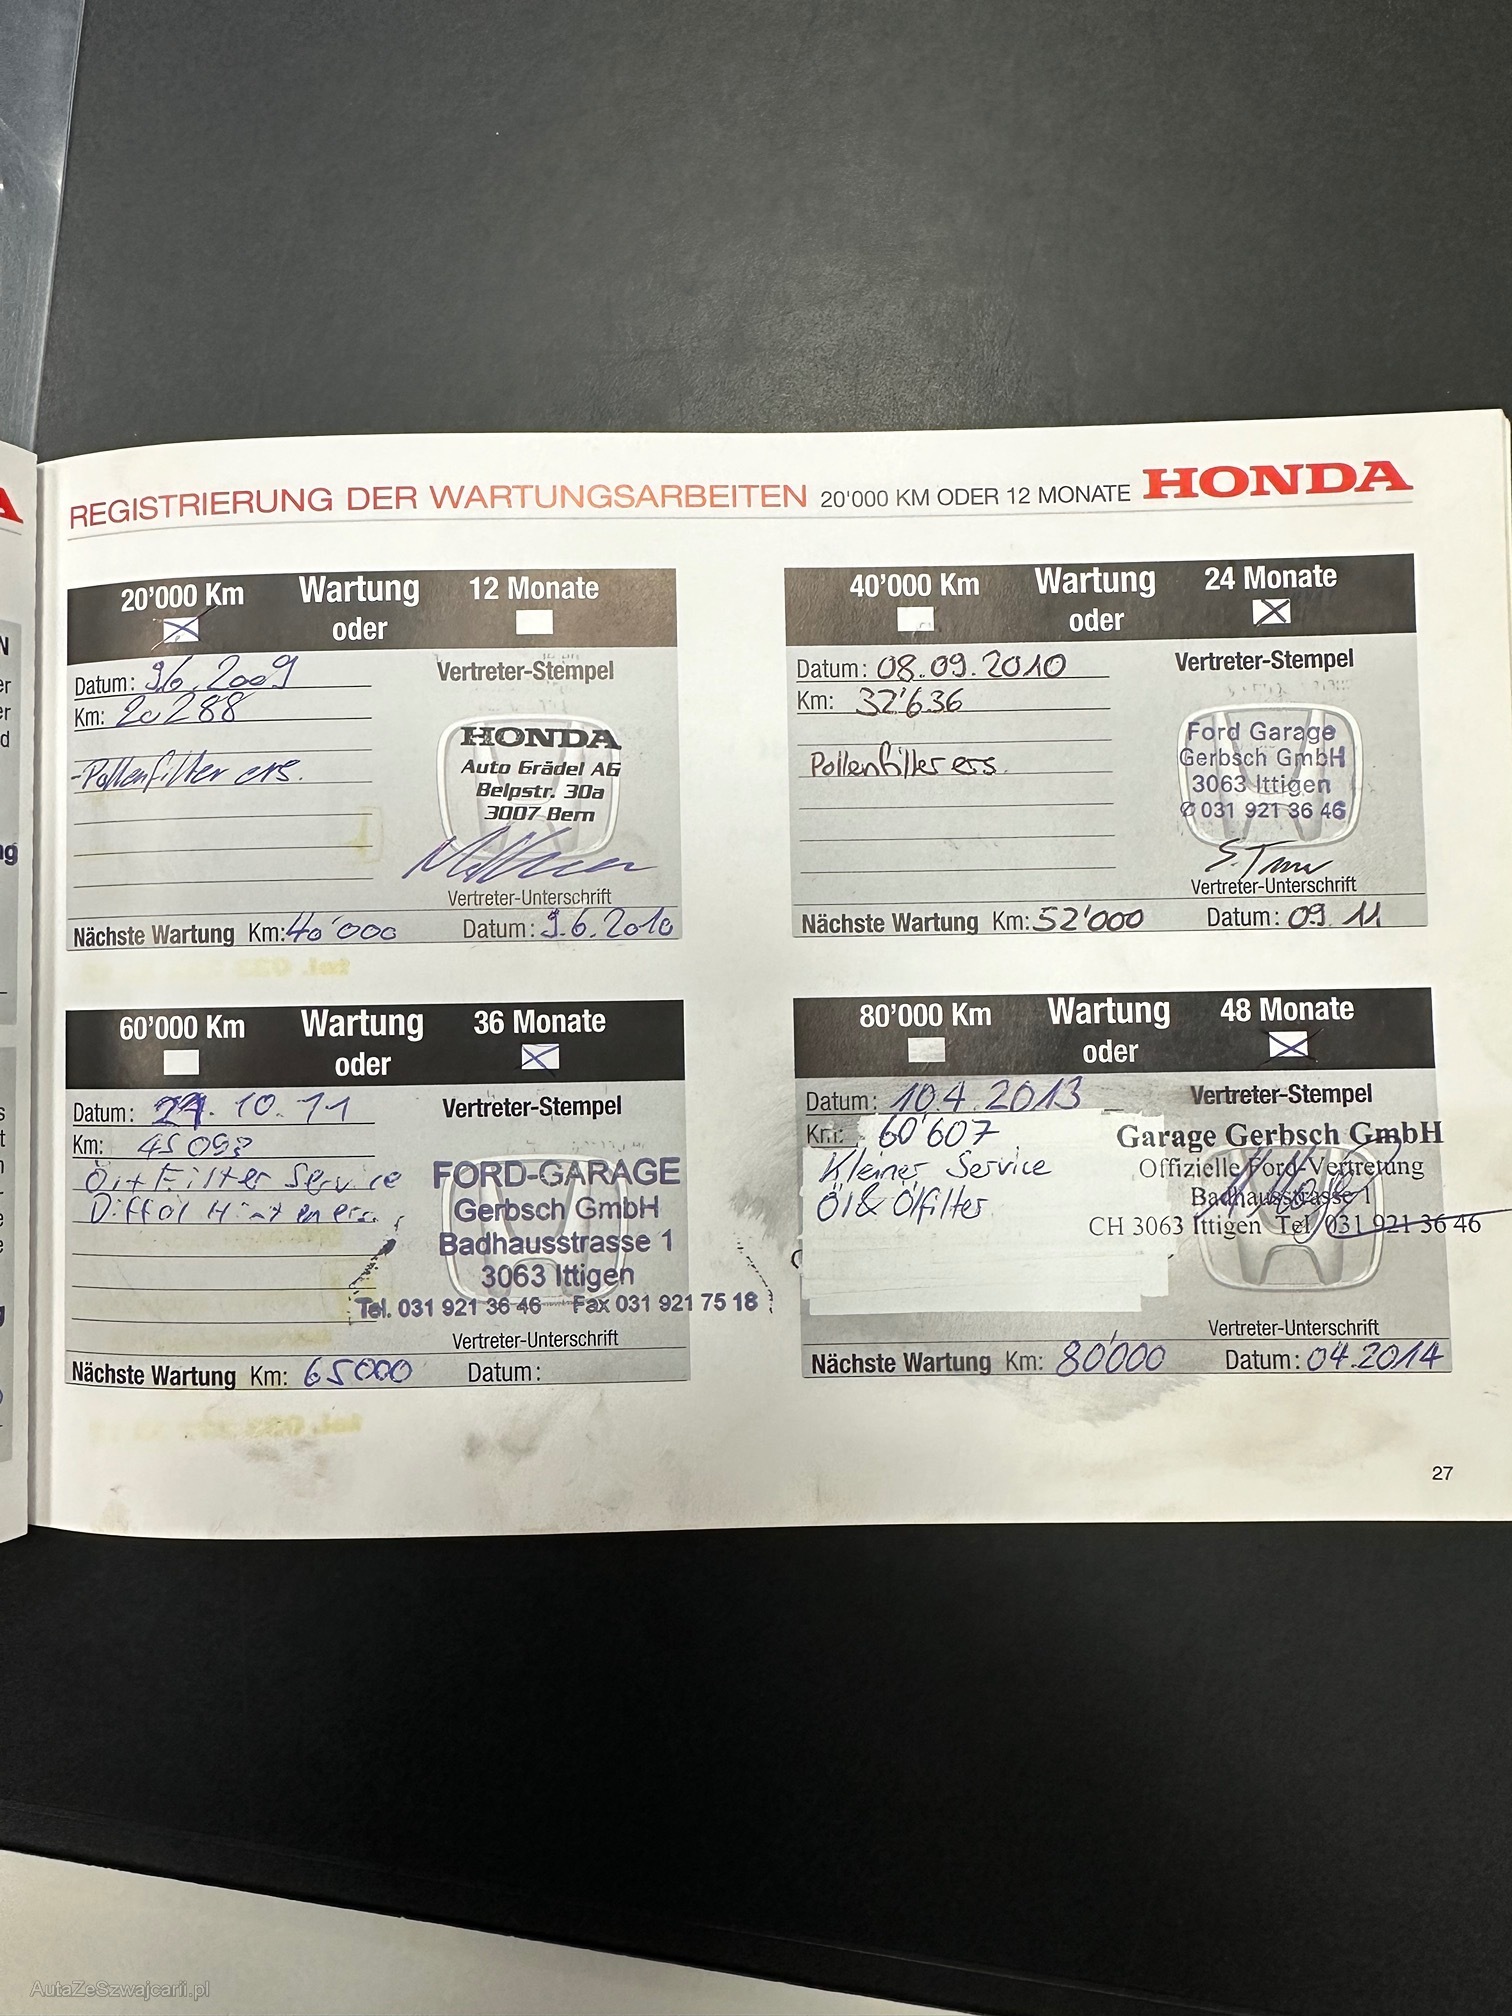 REGISTRIERUNG DER WARTUNGSARBEITEN 20'000 KM ODER 12 MONATE HONDA
20'000 Km Wartung oder 12 Monate
Datum: 9.6.2009
Km: 20288
-Pollenfilter ers.
Vertreter-Stempel
HONDA
Auto Grädel AG
Belpstr. 30a
3007 Bern
Vertreter-Unterschrift
Nächste Wartung Km: 40'000 Datum: 9.6.2010
40'000 Km Wartung oder 24 Monate
Datum: 08.09.2010
Km: 32'636
Pollenfilter ers.
Vertreter-Stempel
Ford Garage
Gerbsch GmbH
3063 Ittigen
✆ 031 921 36 46
Vertreter-Unterschrift
Nächste Wartung Km: 52'000 Datum: 09.11
60'000 Km Wartung oder 36 Monate
Datum: .10.11
Km: 4509
Öl+Filter Service
Vertreter-Stempel
FORD-GARAGE
Gerbsch GmbH
Badhausstrasse 1
3063 Ittigen
Tel. 031 921 36 46 Fax 031 921 75 18
Vertreter-Unterschrift
Nächste Wartung Km: 65000 Datum:
80'000 Km Wartung oder 48 Monate
Datum: 10.4.2013
Km: 60'607
Kleiner Service
Öl & Ölfilter
Vertreter-Stempel
Garage Gerbsch GmbH
Offizielle Ford-Vertretung
Badhausstrasse 1
CH 3063 Ittigen Tel. 031 921 36 46
Vertreter-Unterschrift
Nächste Wartung Km: 80'000 Datum: 04.2014
27
AutaZeSzwajcarii.pl